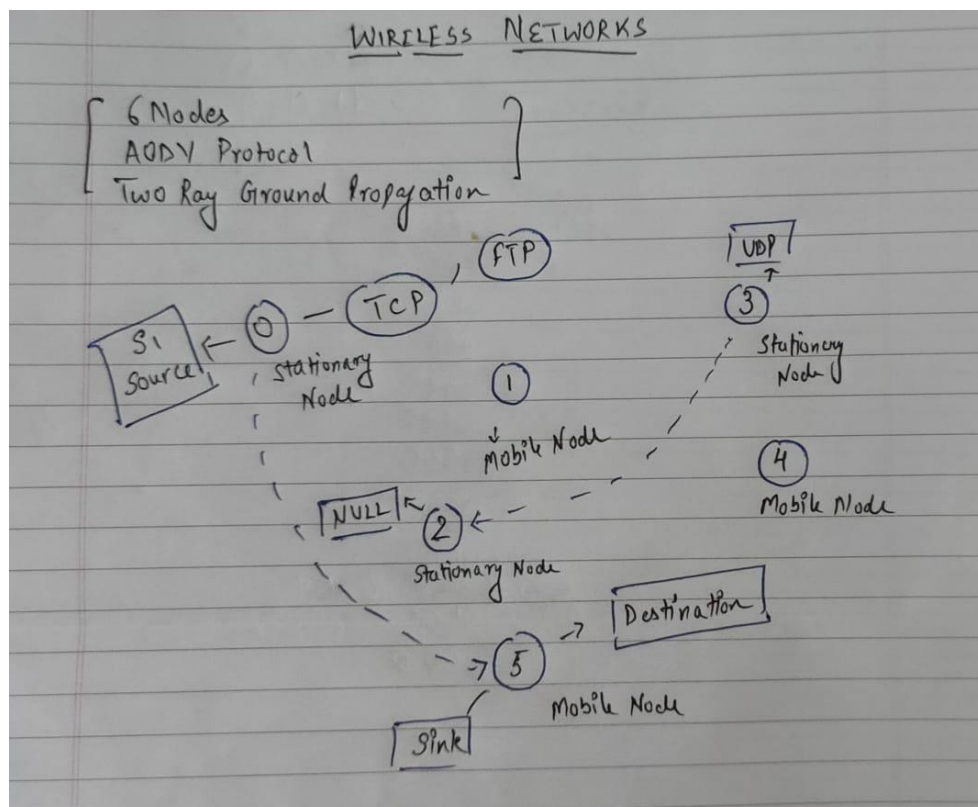 WIRELESS NETWORKS
6 Nodes
AODV Protocol
Two Ray Ground Propagation
FTP
UDP
TCP
0
3
S1
Source
Stationary
Node
Stationary
Node
1
Mobile Node
4
Mobile Node
NULL
2
Stationary Node
Destination
5
Mobile Node
Sink